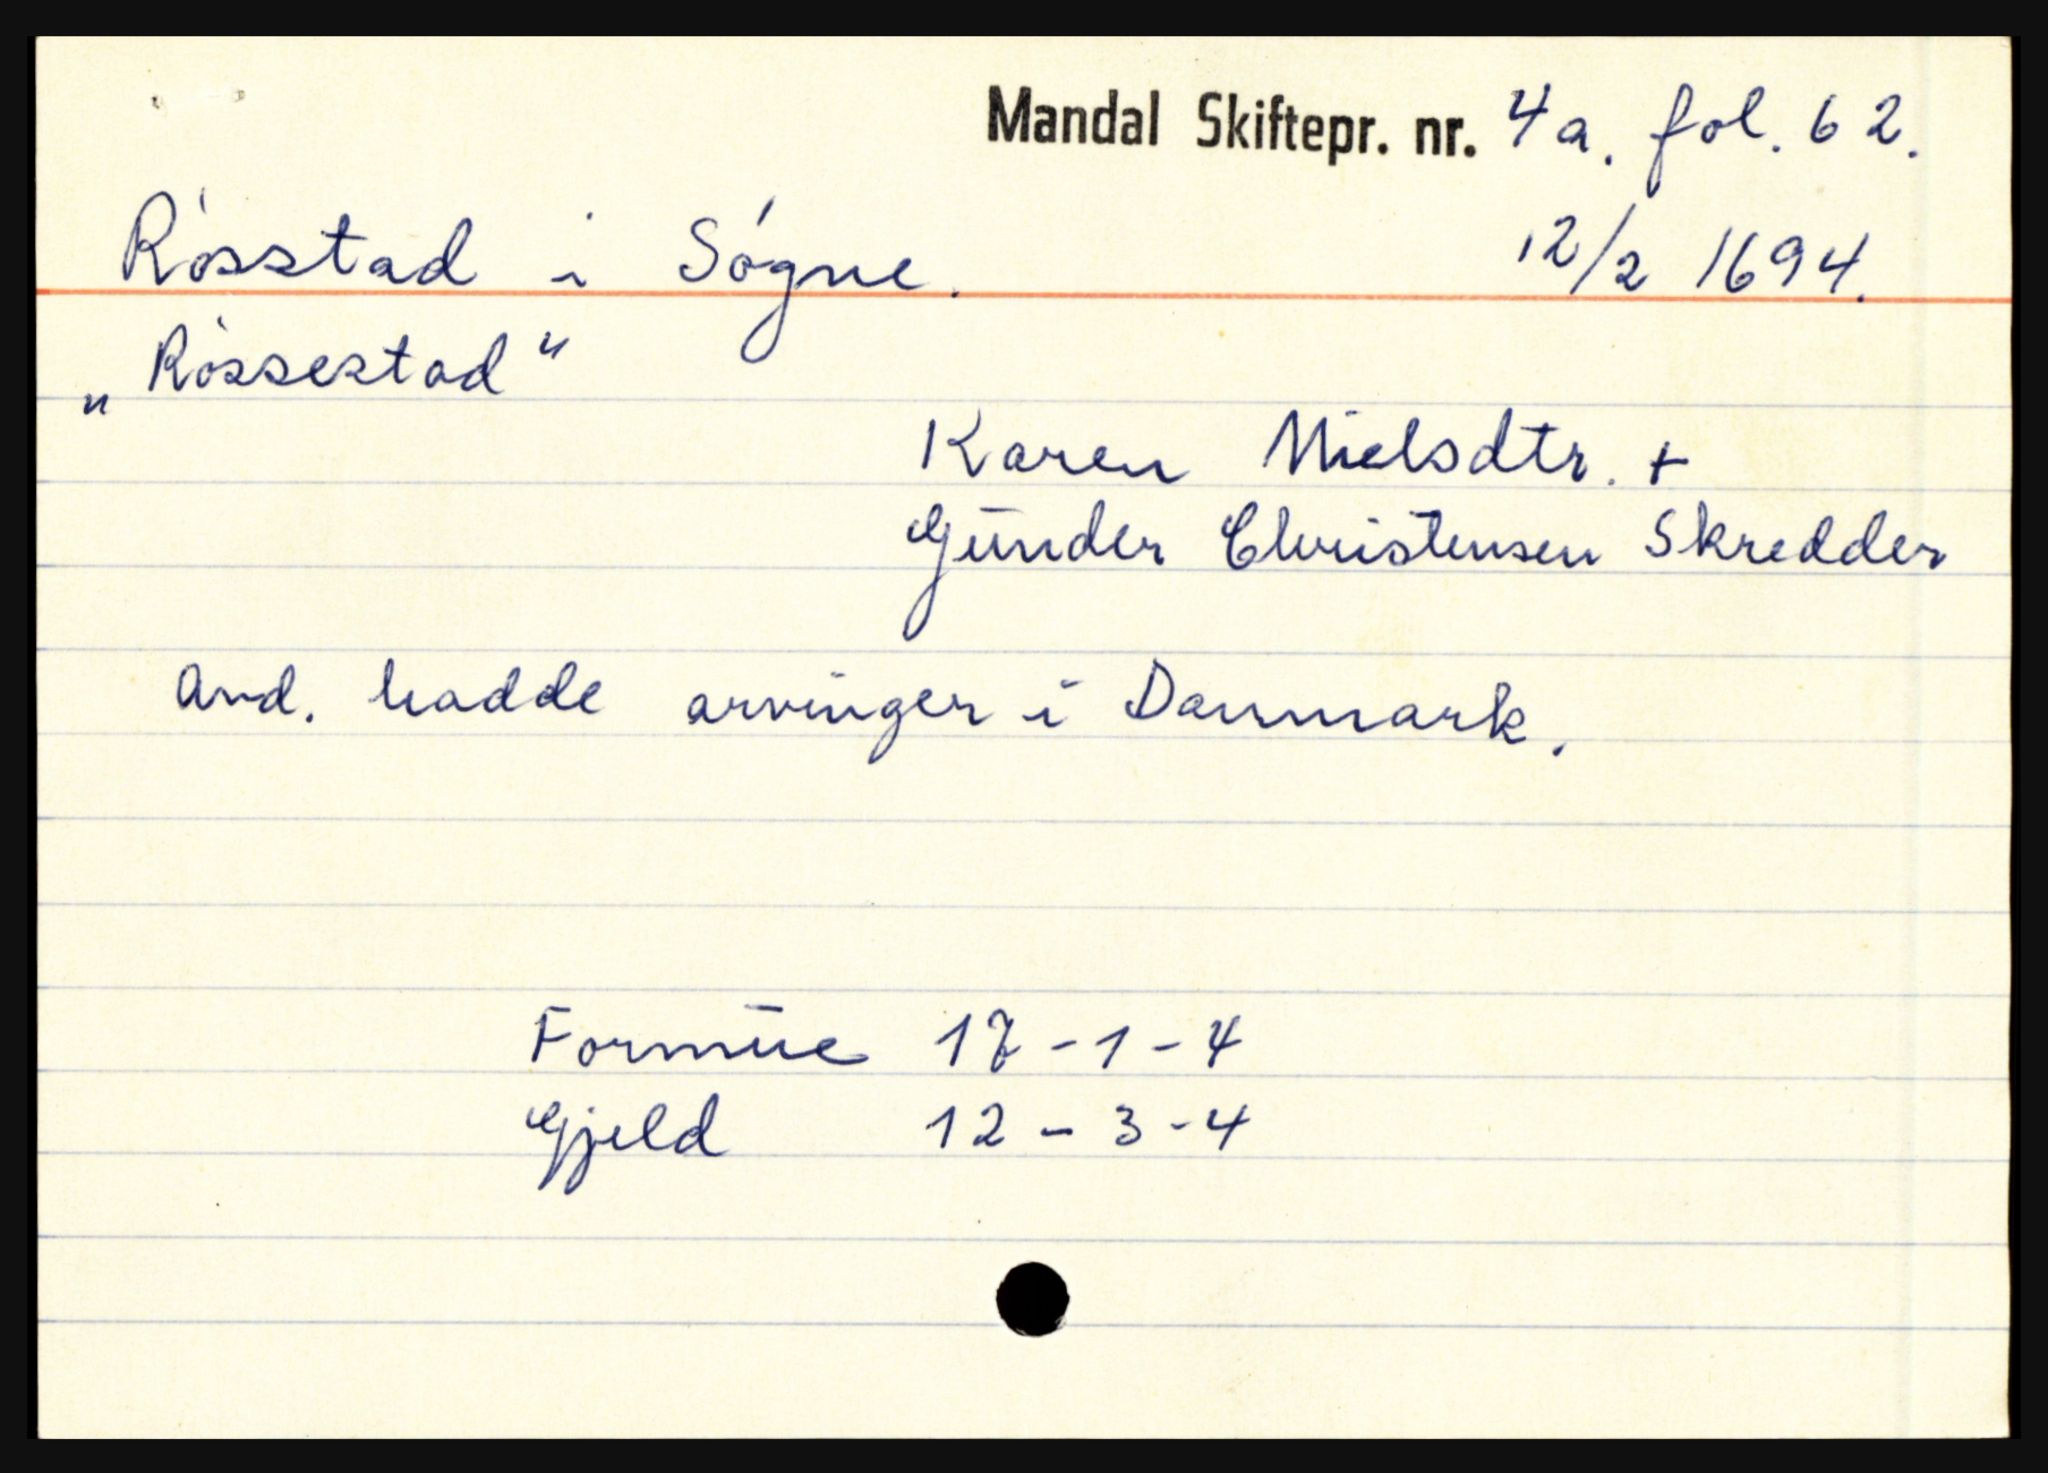 Mandal Skiftepr. nr. 4a. fol. 62.
Røsstad i Søgne. 12/2 1694.
„Røssestad"
Karen Nielsdtr. +
Gunder Christensen Skredder
Avd. hadde arvinger i Danmark.
Formue 17-1-4
Gjeld 12-3-4